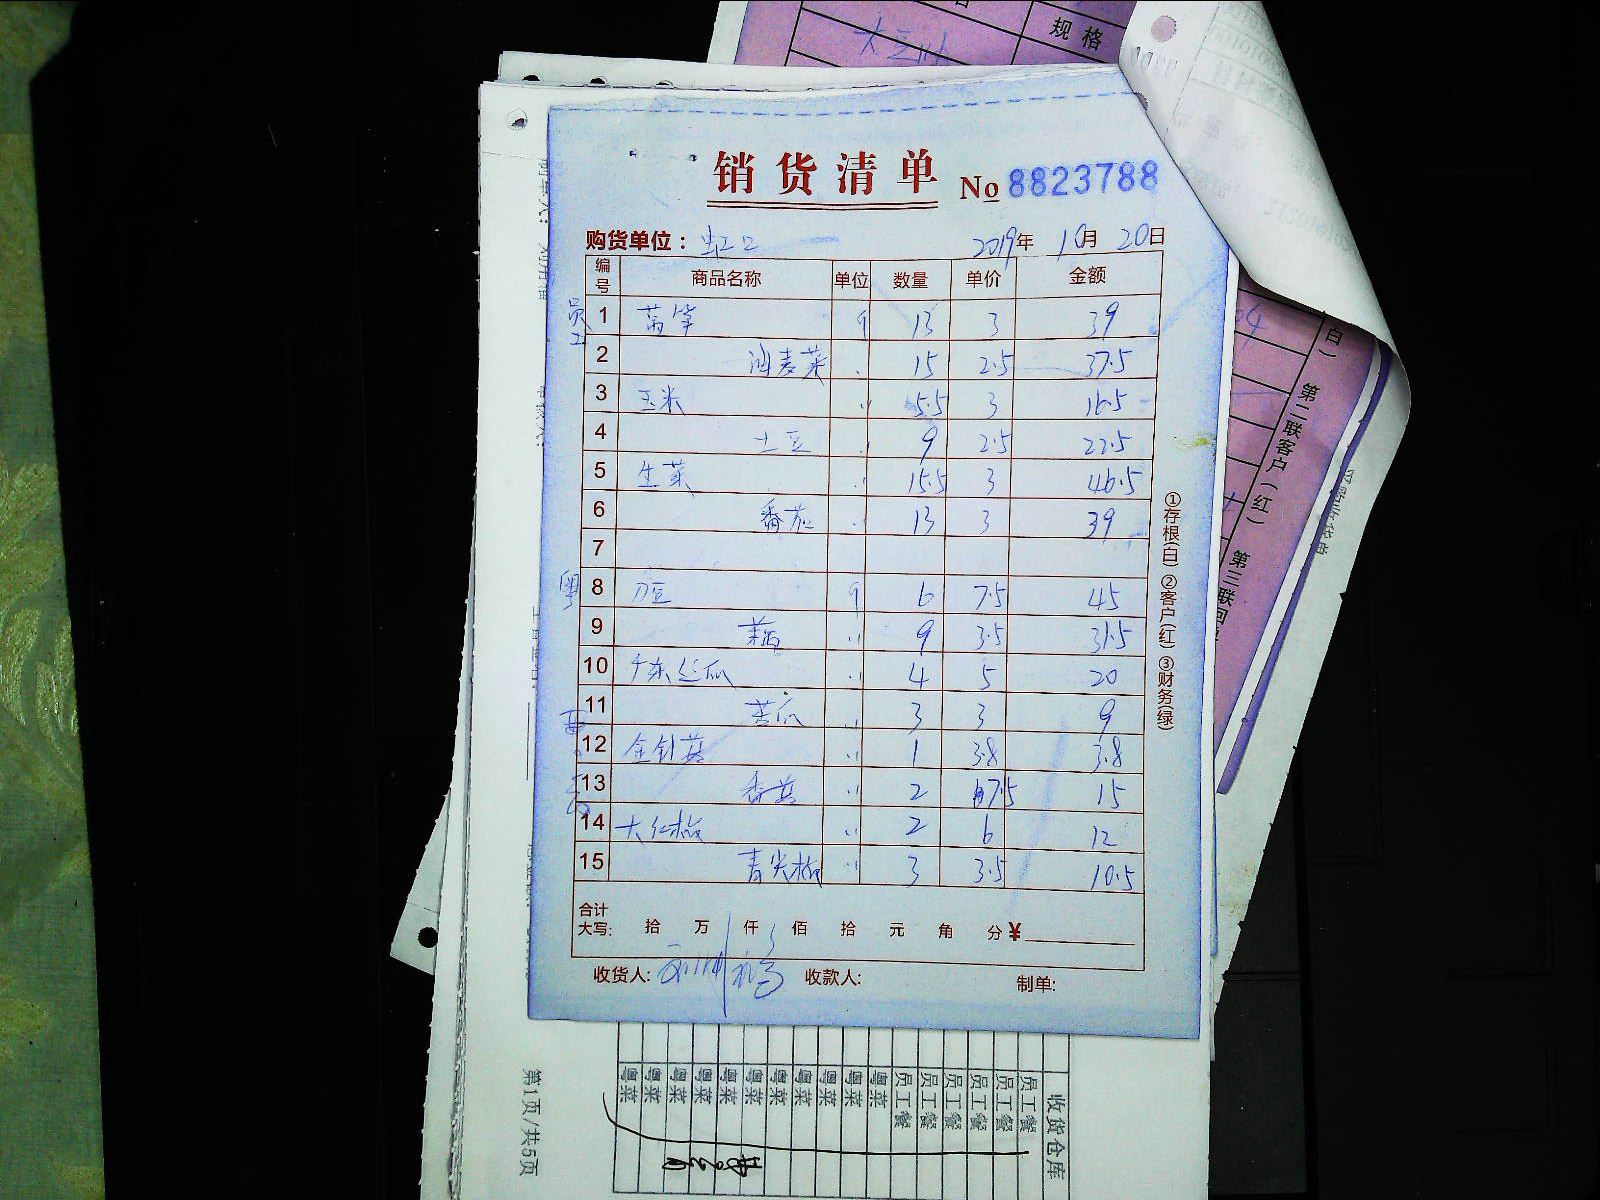 规格
销货清单 No 8823788
购货单位： 虹口 2019年 10月 20日
编号 商品名称 单位 数量 单价 金额
员工
1 莴笋 斤 13 3 39
2 油麦菜 15 2.5 37.5
3 玉米 〃 5.5 3 16.5
4 土豆 9 2.5 22.5
5 生菜 〃 15.5 3 46.5
6 番茄 13 3 39
7
粤
8 刀豆 斤 6 7.5 45
9 〃 9 3.5 31.5
10 丝瓜 〃 4 5 20
11 苦瓜 〃 3 3 9
12 金针菇 〃 1 3.8 3.8
13 香菇 〃 2 7.5 15
14 大红椒 〃 2 6 12
15 青尖椒 〃 3 3.5 10.5
合计
大写: 拾 万 仟 佰 拾 元 角 分 ¥
收货人: 收款人: 制单:
①存根(白) ②客户(红) ③财务(绿)
白）
第二联客户（红）
第三联回
收货仓库
员工餐
员工餐
员工餐
员工餐
员工餐
员工餐
粤菜
粤菜
粤菜
粤菜
粤菜
粤菜
粤菜
粤菜
粤菜
粤菜
粤菜
第1页/共5页